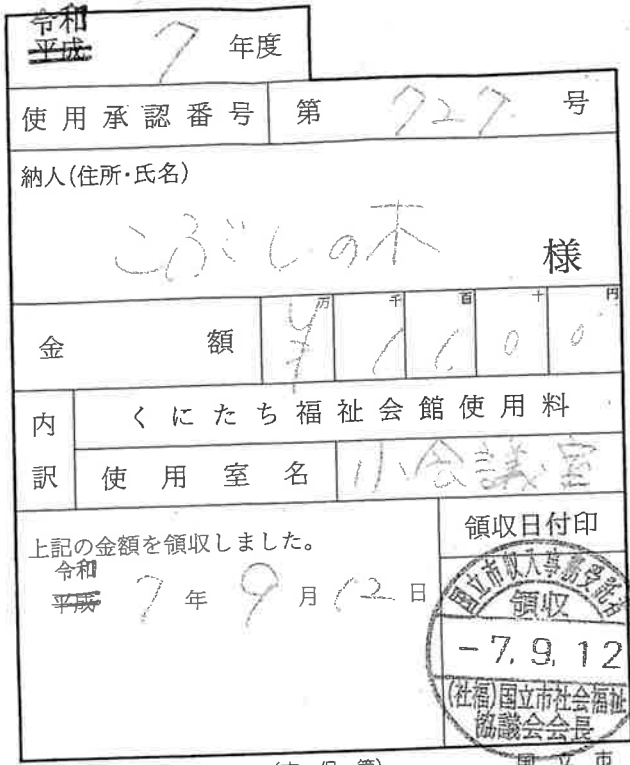 令和
平成 7 年度
使用承認番号 第 727 号
納人(住所・氏名)
こぶしの木 様
金額 ¥ 万 1 千 1 百 0 十 0 円
内訳 くにたち福祉会館使用料
使用室名 小会議室
上記の金額を領収しました。
令和
平成 7 年 9 月 12 日
領収日付印
国立市収入事務受託者
領収
-7.9.12
(社福)国立市社会福祉
協議会会長
国立市